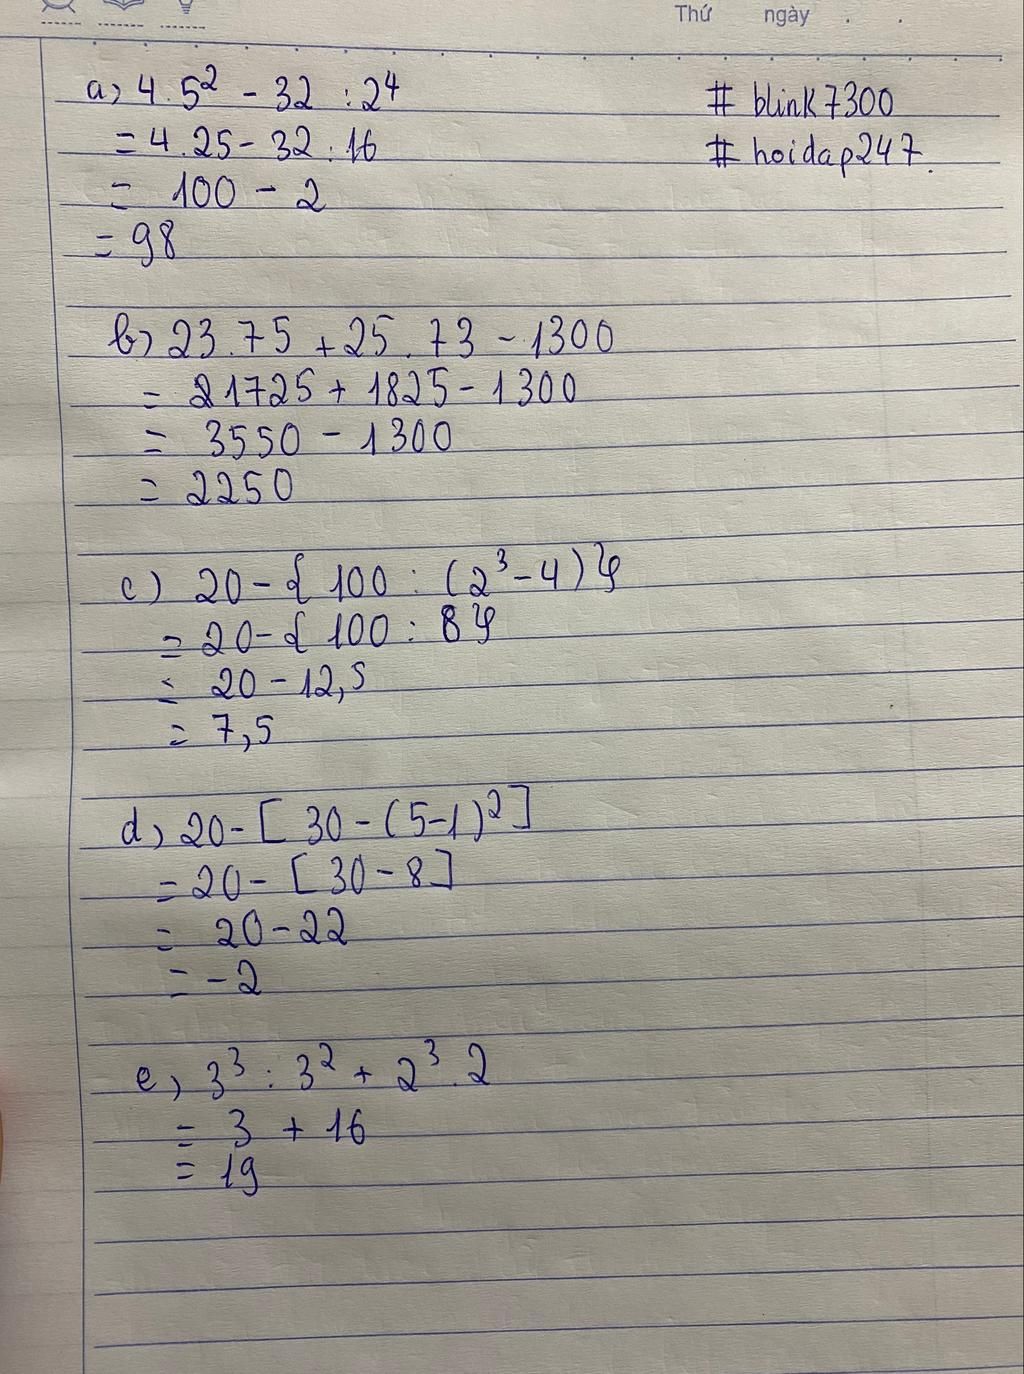 Thứ ngày . .
a) 4.5² - 32 : 2⁴
# blink7300
= 4.25 - 32 : 16
# hoidap247.
= 100 - 2
= 98
b) 23.75 + 25.73 - 1300
= 21725 + 1825 - 1300
= 3550 - 1300
= 2250
c) 20 - { 100 : (2³ - 4) }
= 20 - { 100 : 8 }
= 20 - 12,5
= 7,5
d) 20 - [ 30 - (5-1)² ]
= 20 - [ 30 - 8 ]
= 20 - 22
= -2
e) 3³ : 3² + 2³.2
= 3 + 16
= 19